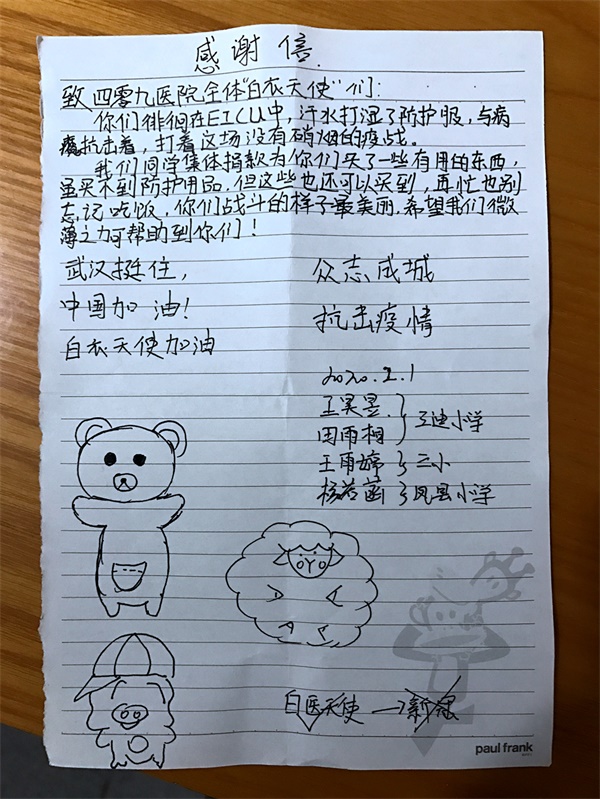 感谢信
致四零九医院全体"白衣天使"们:
你们徘徊在EICU中,汗水打湿了防护服,与病
毒抗击着,打着这场没有硝烟的疫战。
我们同学集体捐款为你们买了一些有用的东西,
虽买不到防护用品,但这些也还可以买到,再忙也别
忘记吃饭,你们战斗的样子最美丽.希望我们微
薄之力可帮助到你们!
武汉挺住,
众志成城
中国加油!
抗击疫情
白衣天使加油
2020.2.1
王昊昱
田雨相
迪小学
王雨婷
三小
杨若菡
凤县小学
白医天使→新冠
paul frank